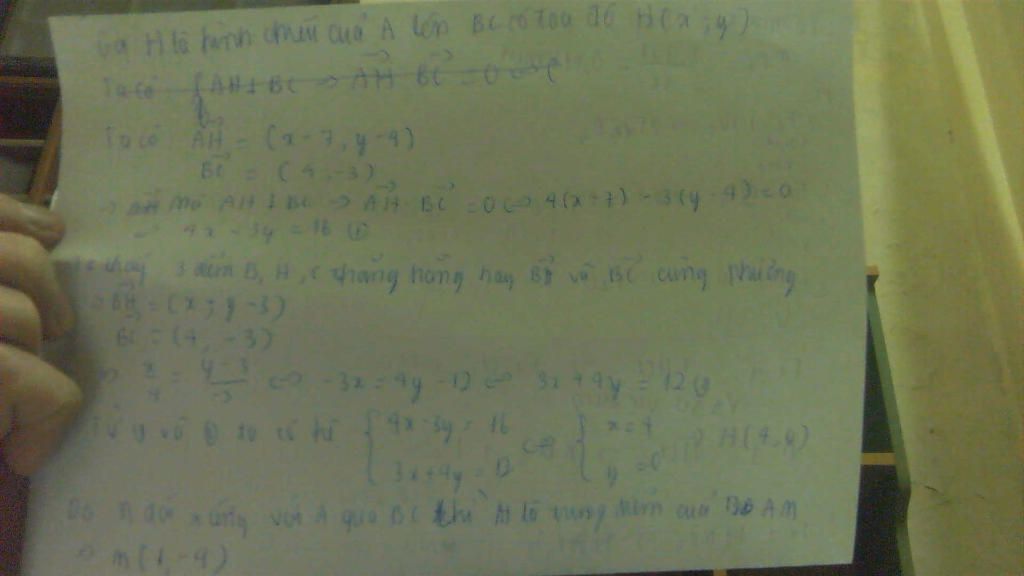 Gọi H là hình chiếu của A lên BC có toạ độ H(x; y)
Ta có { AH ⊥ BC => AH BC = 0 <=> (
Ta có AH = (x - 7, y - 4)
BC = (4, -3)
=> Mà AH ⊥ BC => AH BC = 0 <=> 4(x - 7) - 3(y - 4) = 0
=> 4x - 3y = 16
thấy 3 điểm B, H, C thẳng hàng hay BH và BC cùng phương
=> BH = (x; y - 3)
BC = (4, -3)
=> x/4 = (y - 3)/-3 <=> -3x = 4y - 12 <=> 3x + 4y = 12
Từ và ta có hệ { 4x - 3y = 16 3x + 4y = 12 <=> { x = 4 y = 0 => H(4, 0)
Do M đối xứng với A qua BC thì H là trung điểm của AM
=> M(1, -4)